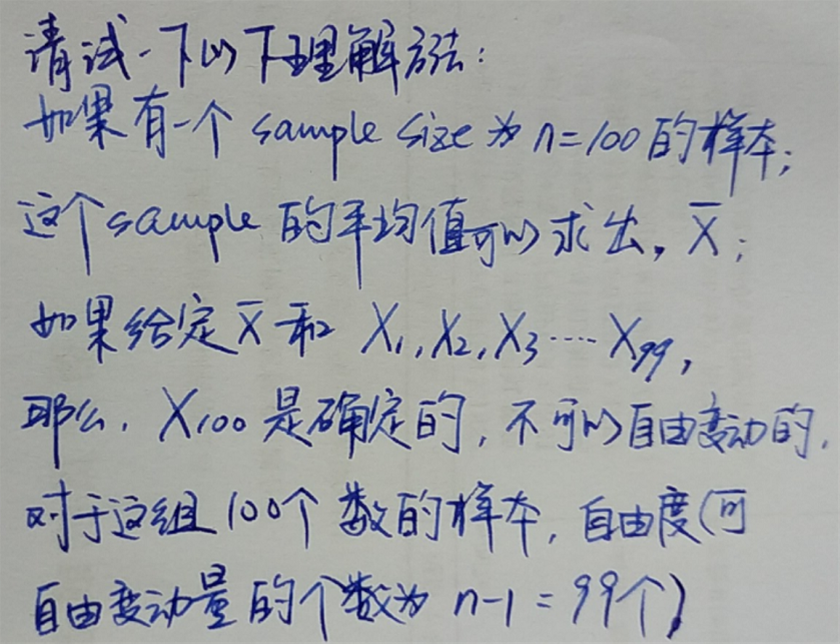 请试一下以下理解方法:
如果有一个 sample size 为 n=100 的样本;
这个 sample 的平均值可以求出, X̄;
如果给定 X̄ 和 X₁, X₂, X₃ ···· X₉₉,
那么, X₁₀₀ 是确定的, 不可以自由变动的,
对于这组100个数的样本, 自由度(可
自由变动量的个数为 n-1 = 99个)